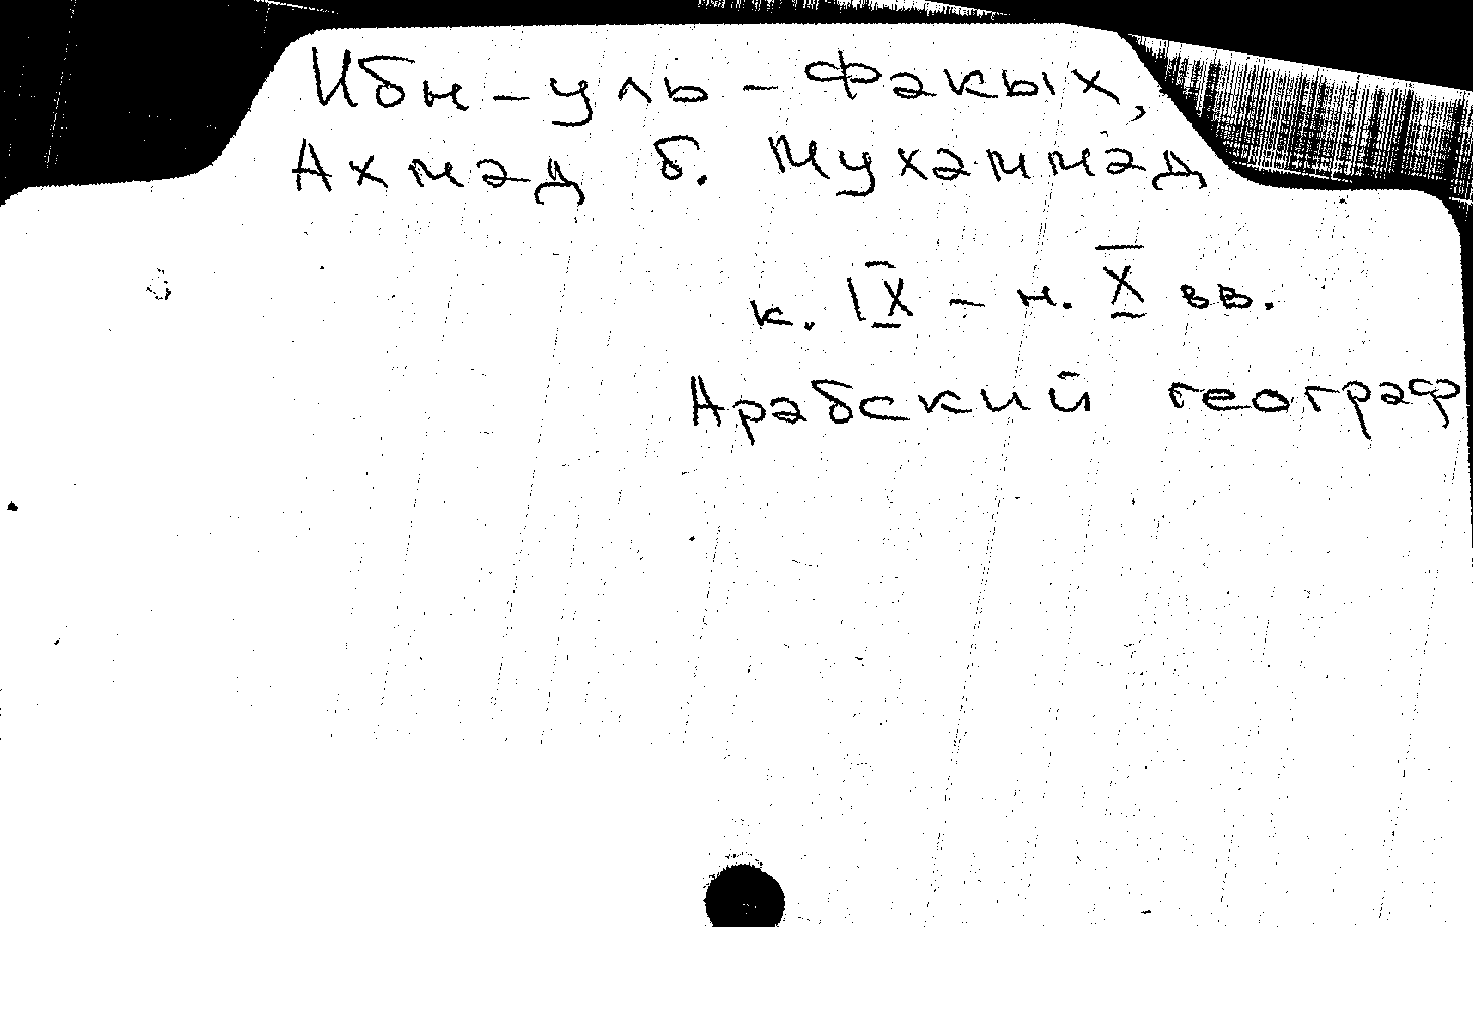 Ибн-уль-Факых,
Ахмад б. Мухаммад
к. IX - н. X вв.
Арабский географ